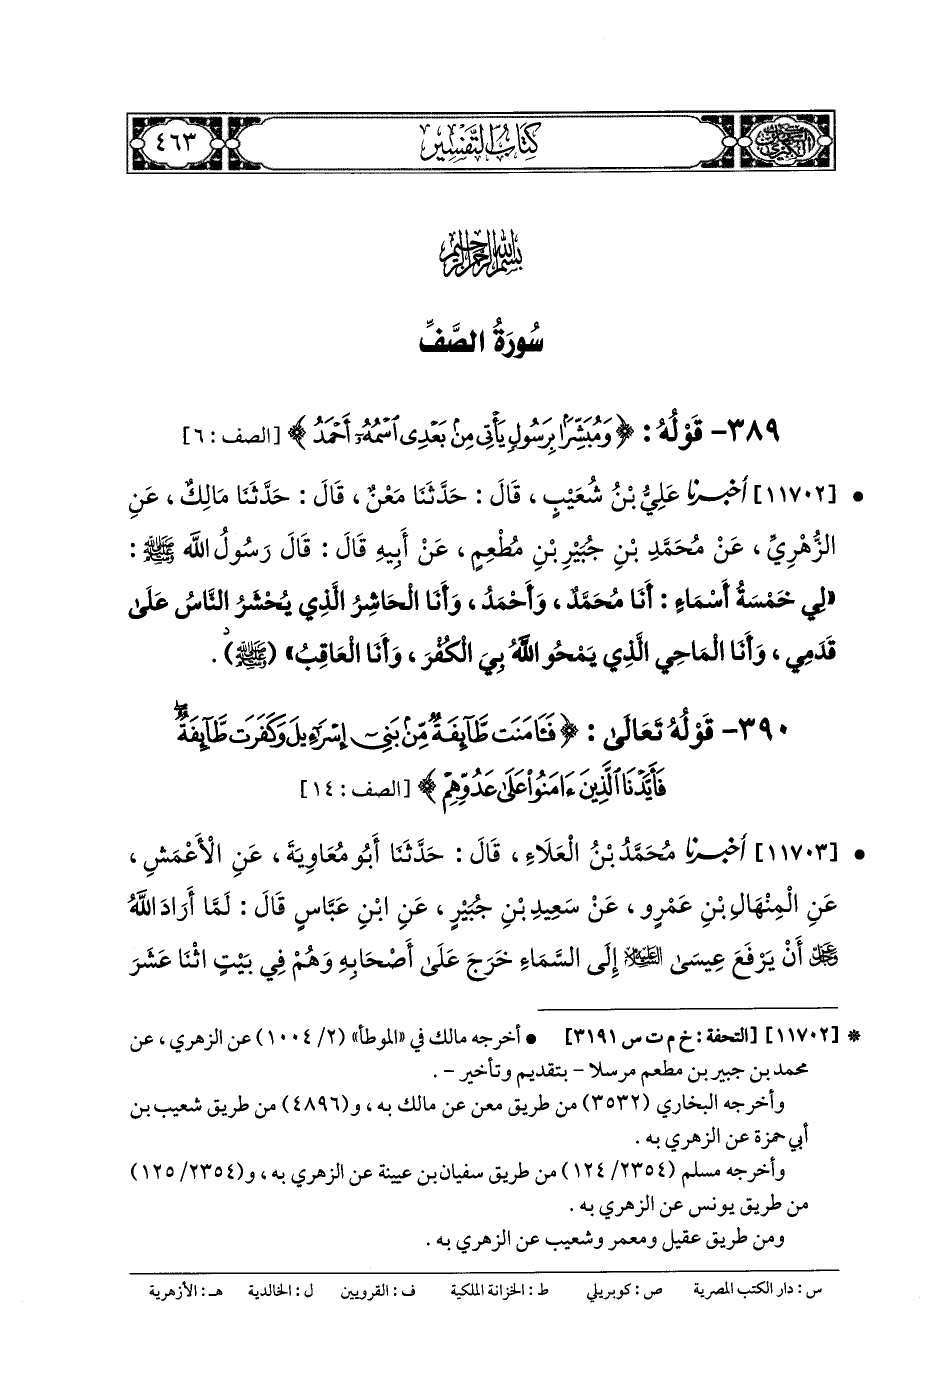 كتاب التفسير
٤٦٣
بسم الله الرحمن الرحيم
سُورَةُ الصَّفِّ
٣٨٩- قَوْلُهُ : ﴿ وَمُبَشِّرًا بِرَسُولٍ يَأْتِي مِنْ بَعْدِي ٱسْمُهُۥٓ أَحْمَدُ ﴾ [الصف : ٦]
• [١١٧٠٢] أخبرنا عَلِيُّ بْنُ شُعَيْبٍ ، قَالَ : حَدَّثَنَا مَعْنٌ ، قَالَ : حَدَّثَنَا مَالِكٌ ، عَنِ
الزُّهْرِيِّ ، عَنْ مُحَمَّدِ بْنِ جُبَيْرِ بْنِ مُطْعِمٍ ، عَنْ أَبِيهِ قَالَ : قَالَ رَسُولُ اللَّه ﷺ :
«لِي خَمْسَةُ أَسْمَاءٍ : أَنَا مُحَمَّدٌ ، وَأَحْمَدُ ، وَأَنَا الْحَاشِرُ الَّذِي يُحْشَرُ النَّاسُ عَلَى
قَدَمِي ، وَأَنَا الْمَاحِي الَّذِي يَمْحُو اللَّهُ بِيَ الْكُفْرَ ، وَأَنَا الْعَاقِبُ» (ﷺ) .
٣٩٠- قَوْلُهُ تَعَالَى : ﴿ فَـَٔامَنَت طَّآئِفَةٌ مِّنۢ بَنِيٓ إِسْرَٰٓءِيلَ وَكَفَرَت طَّآئِفَةٌ ۖ
فَأَيَّدْنَا ٱلَّذِينَ ءَامَنُوا۟ عَلَىٰ عَدُوِّهِمْ ﴾ [الصف : ١٤]
• [١١٧٠٣] أخبرنا مُحَمَّدُ بْنُ الْعَلَاءِ ، قَالَ : حَدَّثَنَا أَبُو مُعَاوِيَةَ ، عَنِ الْأَعْمَشِ ،
عَنِ الْمِنْهَالِ بْنِ عَمْرٍو ، عَنْ سَعِيدِ بْنِ جُبَيْرٍ ، عَنِ ابْنِ عَبَّاسٍ قَالَ : لَمَّا أَرَادَ اللَّهُ
عز وجل أَنْ يَرْفَعَ عِيسَى عليه السلام إِلَى السَّمَاءِ خَرَجَ عَلَى أَصْحَابِهِ وَهُمْ فِي بَيْتٍ اثْنَا عَشَرَ
* [١١٧٠٢] [التحفة : خ م ت س ٣١٩١] • أخرجه مالك في «الموطأ» (٢/ ١٠٠٤) عن الزهري ، عن
محمد بن جبير بن مطعم مرسلا - بتقديم وتأخير - .
وأخرجه البخاري (٣٥٣٢) من طريق معن عن مالك به ، و(٤٨٩٦) من طريق شعيب بن
أبي حمزة عن الزهري به .
وأخرجه مسلم (٢٣٥٤/ ١٢٤) من طريق سفيان بن عيينة عن الزهري به ، و(٢٣٥٤/ ١٢٥)
من طريق يونس عن الزهري به .
ومن طريق عقيل ومعمر وشعيب عن الزهري به .
س : دار الكتب المصرية ص : كوبريلي ط : الخزانة الملكية ف : القرويين ل : الخالدية هـ : الأزهرية